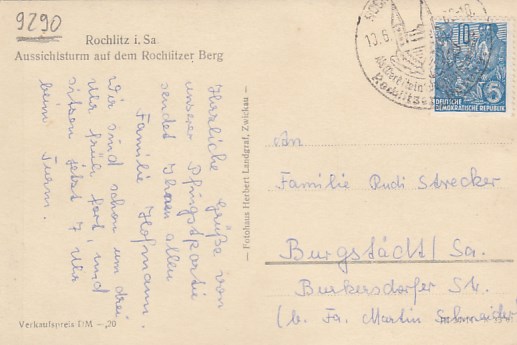 9290
Rochlitz i. Sa
Aussichtsturm auf dem Rochlitzer Berg
Herzliche Grüße von
unserer Pfingstpartie
sendet Ihnen allen
Familie Hofmann.
Wir sind schon um drei
Uhr früh fort, und
sitzen jetzt 7 Uhr
beim Turm.
Verkaufspreis DM –,20
— Fotohaus Herbert Landgraf, Zwickau —
10.6
Rochlitz
10
5
DEUTSCHE
DEMOKRATISCHE REPUBLIK
An
Familie Rudi Strecker
Burgstädt/Sa.
Burkersdorfer Str.
(b. Fa. Martin Schneider)